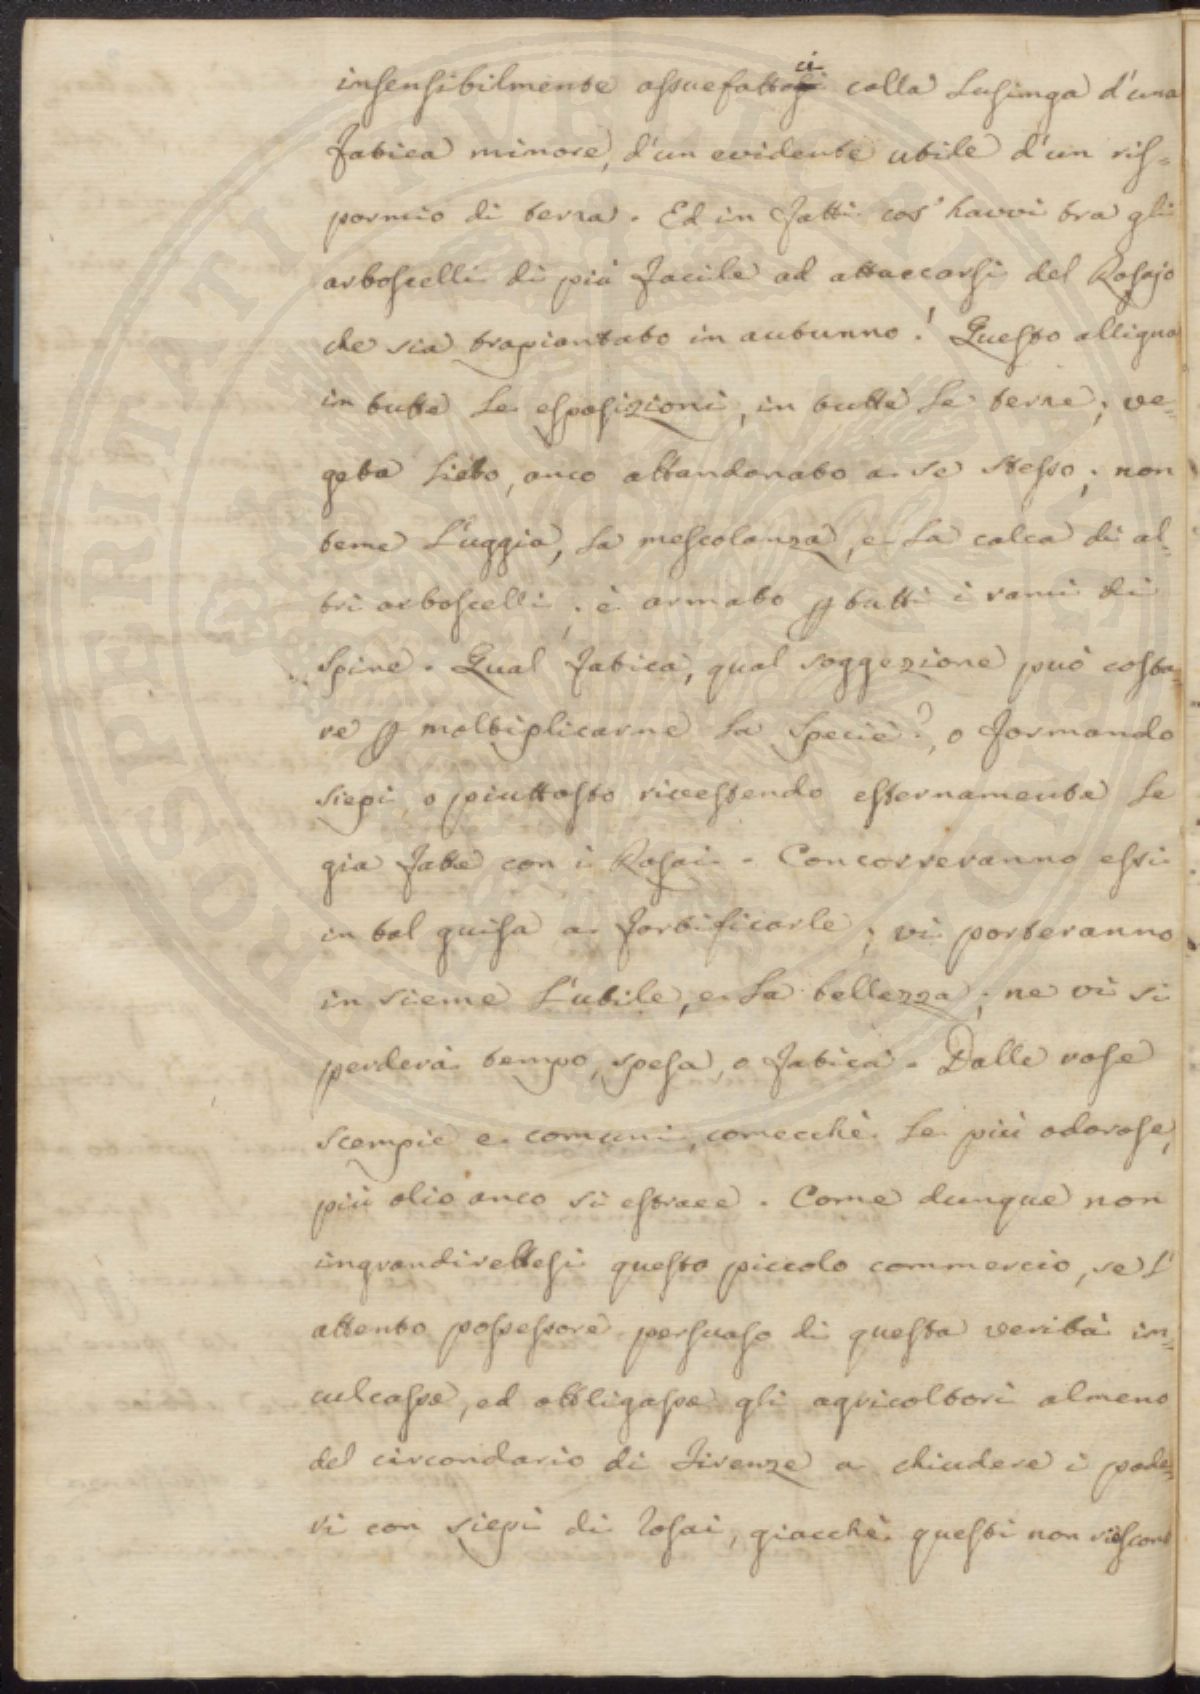 insensibilmente assuefattoci colla lusinga d'una
fatica minore, d'un evidente utile d'un ris=
parmio di terra. Ed in fatti cos' havvi tra gli
arboscelli di più facile ad attaccarsi del Rosajo
che sia trapiantato in autunno! Questo alligna
in tutte le esposizioni, in tutte le terre; ve=
geta lieto, anco abbandonato a se stesso; non
teme l'uggia, la mescolanza, e la calca di al=
tri arboscelli; è armato p tutti i rami di
spine. Qual fatica, qual soggezione può costa=
re p moltiplicarne la specie?, o formando
siepi, o piuttosto rivestendo esternamente le
gia fatte con i Rosai. Concorreranno essi
in tal guisa a fortificarle; vi porteranno
in sieme l'utile, e la bellezza; ne vi si
perderà tempo, spesa, o fatica. Dalle rose
scempie e comuni, comecchè le più odorose,
più olio anco si estrae. Come dunque non
ingrandirebbesi questo piccolo commercio, se l'
attento possessore persuaso di questa verità in=
culcasse, ed obbligasse gli agricoltori almeno
del circondario di Firenze a chiudere i pode=
ri con siepi di rosai, giacchè questi non riescono
PROSPERITATI PVBLICAE